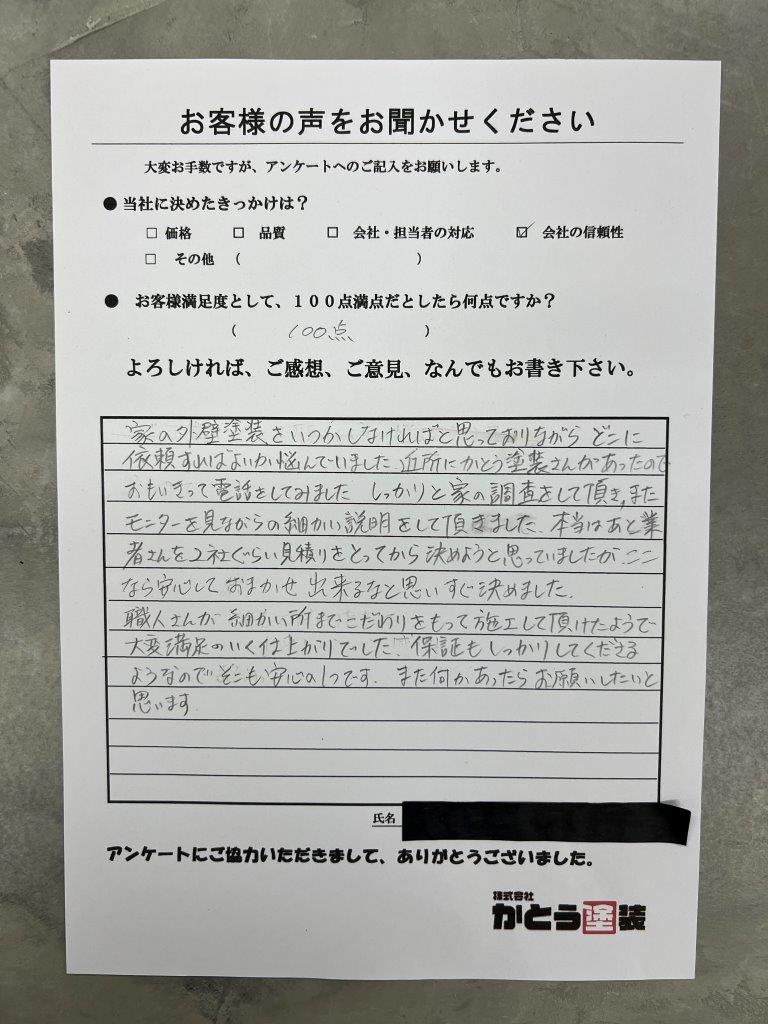 お客様の声をお聞かせください
大変お手数ですが、アンケートへのご記入をお願いします。
● 当社に決めたきっかけは？
□ 価格 □ 品質 □ 会社・担当者の対応 ☑ 会社の信頼性
□ その他 （ ）
● お客様満足度として、１００点満点だとしたら何点ですか？
（ 100点 ）
よろしければ、ご感想、ご意見、なんでもお書き下さい。
家の外壁塗装をいつかしなければと思っておりながら どこに
依頼すればよいか悩んでいました.近所にかとう塗装さんがあったので
おもいきって電話をしてみました しっかりと家の調査をして頂き,また
モニターを見ながらの細かい説明をして頂きました.本当はあと業
者さんを2社ぐらい見積りをとってから決めようと思っていましたが.ここ
なら安心しておまかせ出来るなと思いすぐ決めました.
職人さんが細かい所までこだわりをもって施工して頂けたようで
大変満足のいく仕上がりでした.保証もしっかりしてくださる
ようなのでそこも安心の1つです.また何かあったらお願いしたいと
思います
氏名
アンケートにご協力いただきまして、ありがとうございました。
株式会社
かとう塗装